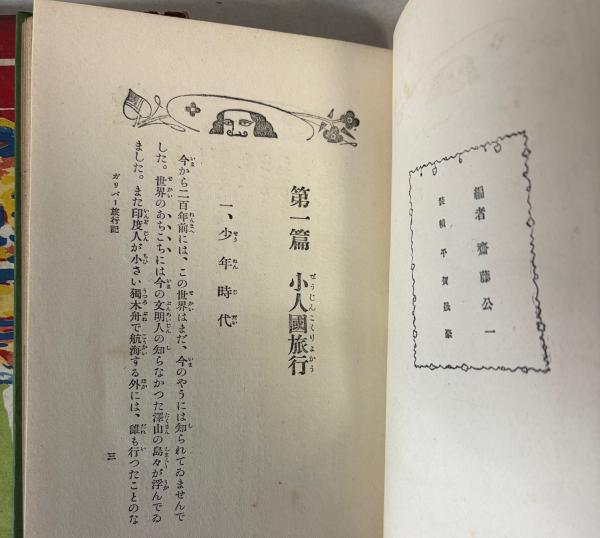 編者 齋藤公一
裝幀 平賀晟豪
第一篇 小人國旅行
一、少年時代
今から二百年前には、この世界はまだ、今のやうには知られてゐませんで
した。世界のあちこちには今の文明人の知らなかつた澤山の島々が浮んでゐ
ました。また印度人が小さい獨木舟で航海する外には、誰も行つたことのな
ガリバー旅行記
三